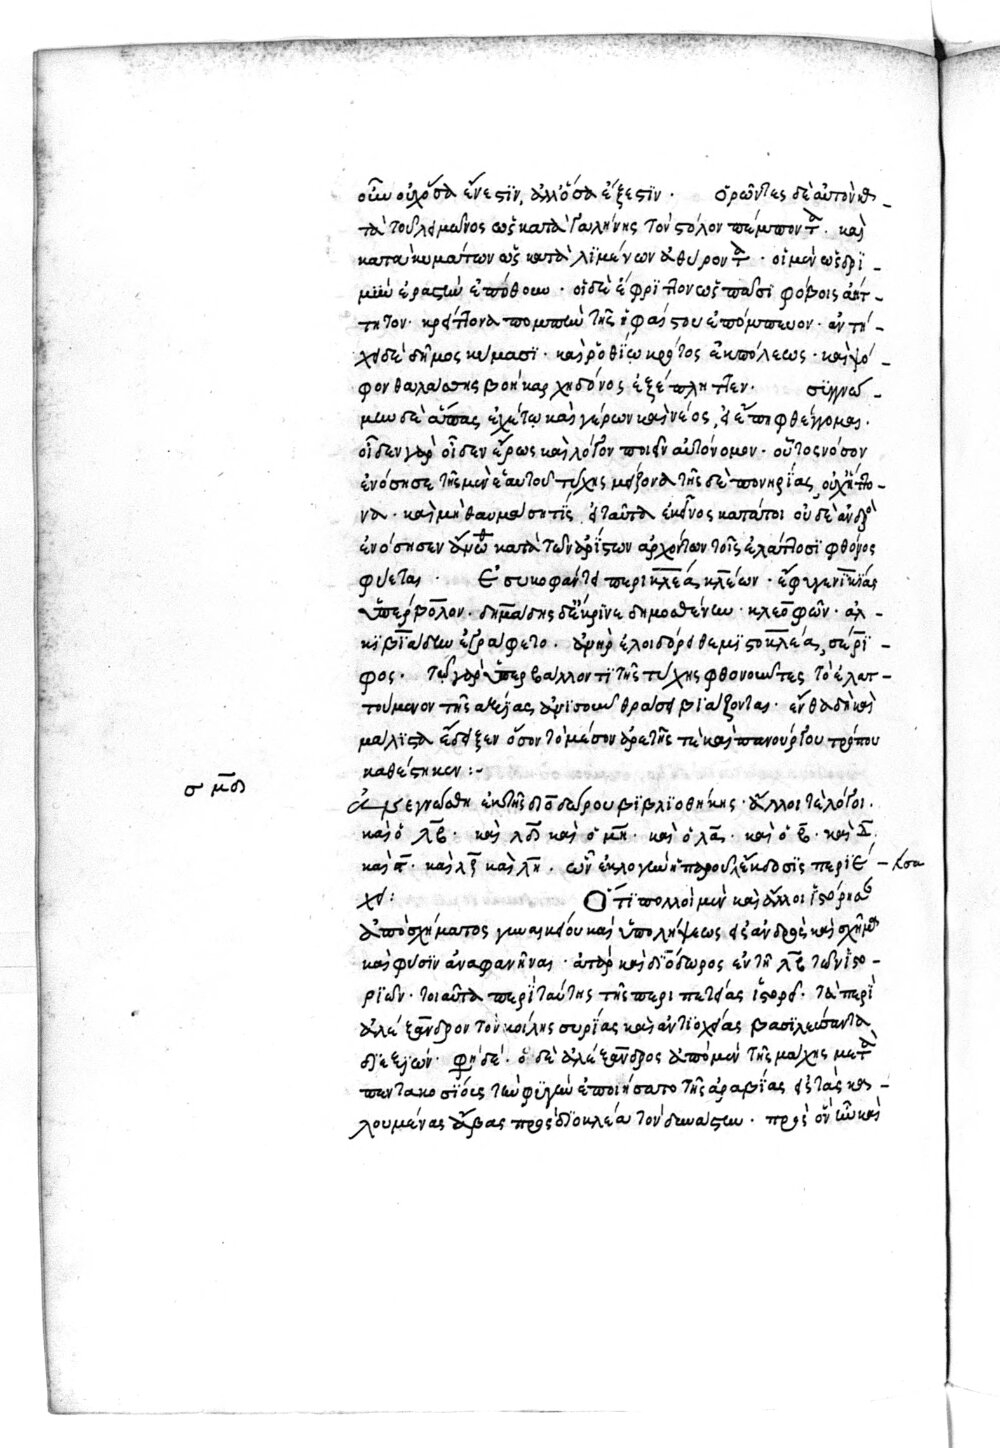 οὖν οὐχ ὅσα ἔνεστιν, ἀλλ' ὅσα ἔξεστιν. ὁρῶντες δὲ αὐτὸν κα-
τὰ τοῦ χειμῶνος ὡς κατὰ γαλήνης τὸν στόλον πέμποντα. καὶ
κατὰ κυμάτων ὡς κατὰ λιμένων ἀθύροντα. οἱ μὲν ὡς δρι-
μὺν ἐραστὴν ἐπόθουν. οἱ δὲ ἔφριττον ὡς πᾶσι φόβοις ἀήτ-
τητον. κρείττονα πομπὴν τῆς ἡφαίστου ἐπόμπευον. ἀντή-
χει δὲ δῆμος κύμασι. καὶ ῥοθίῳ κρότος ἐκ πόλεως. καὶ ψό-
φον θαλάσσης βοὴ καρχηδόνος ἐξέπληττεν. συγγνώ-
μην δὲ ἅπας ἐχέτω καὶ γέρων καὶ νέος, εἴ τι φθέγγομαι.
οἶδεν γὰρ οἶδεν ἔρως καὶ λόγον ποιεῖν αὐτόνομον. οὗτος νόσον
ἐνόσησε τῆς μὲν ἑαυτοῦ τύχης μείζονα τῆς δὲ πονηρίας οὐχ ἥττο-
να. καὶ μὴ θαυμάσῃ τις, εἰ ταῦτα ἐκεῖνος κατά του οὐδὲ ἀνδρὸς
ἐνόσησεν κατὰ τῶν ἀρίστων ἀρχόντων τοῖς ἐλάττοσι φθόνος
φύεται. ἐσυκοφάντει περικλέα κλέων. ἔφυγε νικίας
ὑπέρβολον. δημάδης δὲ ἔκρινε δημοσθένην. κλεοφῶν. ἀλ-
κιβιάδην ἐγράφετο. ἀνὴρ ἐλοιδόρει θεμιστοκλέα, σερί-
φιος. τῷ γὰρ ὑπερβάλλοντι τῆς τύχης φθονοῦντες τὸ ἐλατ-
τούμενον τῆς ἀξίας ἀνισοῦν θράσει βιάζονται. ἔνθα δὴ καὶ
μάλιστα ἔδειξεν ὅσον τὸ μέσον ἀρετῆς τε καὶ πανούργου τρόπου
καθέστηκεν:-
σμδ
Ἀνεγνώσθη ἐκ τῆς διοδώρου βιβλιοθήκης. ἄλλοι τε λόγοι.
καὶ ὁ λβ. καὶ λδ καὶ ὁ μη. καὶ ὁ λα. καὶ ὁ
καὶ καὶ λξ καὶ λη. ὧν ἐκλογὴν ἡ παροῦσα ἔκδοσις περιέ-
χει: Ὅτι πολλοὶ μὲν καὶ ἄλλοι ἱστόρησαν
ἀπὸ σχήματος γυναικείου καὶ ὑπολήψεως εἰς ἀνδρὸς καὶ σχῆμα
καὶ φύσιν ἀναφανῆναι. ἀτὰρ καὶ διόδωρος ἐν τῇ λβ τῶν ἱστο-
ριῶν. τοιαῦτα περὶ ταύτης τῆς περιπετείας ἱστορεῖ. τὰ περὶ
ἀλέξανδρον τὸν κοίλης συρίας καὶ ἀντιοχείας βασιλεύσαντα
διεξιών. φησί. ὁ δὲ ἀλέξανδρος ἀπὸ μὲν τῆς μάχης μετὰ
πεντακοσίων τὴν φυγὴν ἐποιήσατο τῆς ἀραβίας εἰς τὰς κα-
λουμένας ἄβας πρὸς διοκλέα τὸν δυνάστην. πρὸς ὃν ἦν καὶ